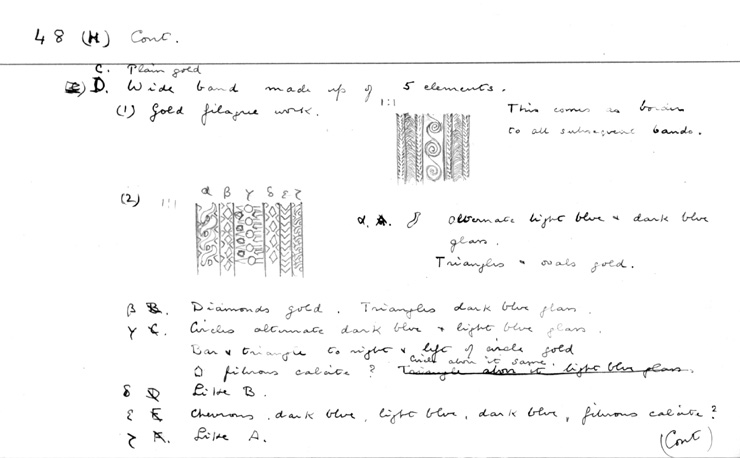 48 (H) Cont.
C. Plain gold
D. Wide band made up of 5 elements.
(1) Gold filagree work.
1:1
This comes as border
to all subsequent bands.
(2) 1:1
α β γ δ ε ζ
α. alternate light blue + dark blue
glass.
Triangles + ovals gold.
β B. Diamonds gold. Triangles dark blue glass.
γ C. Circles alternate dark blue + light blue glass.
Bar + triangle to right + left of circle gold
Circle above it same.
fibrous calcite? Triangle above it light blue glass.
δ D Like B.
ε E Chevrons, dark blue, light blue, dark blue, fibrous calcite?
ζ F. Like A.
(Cont)